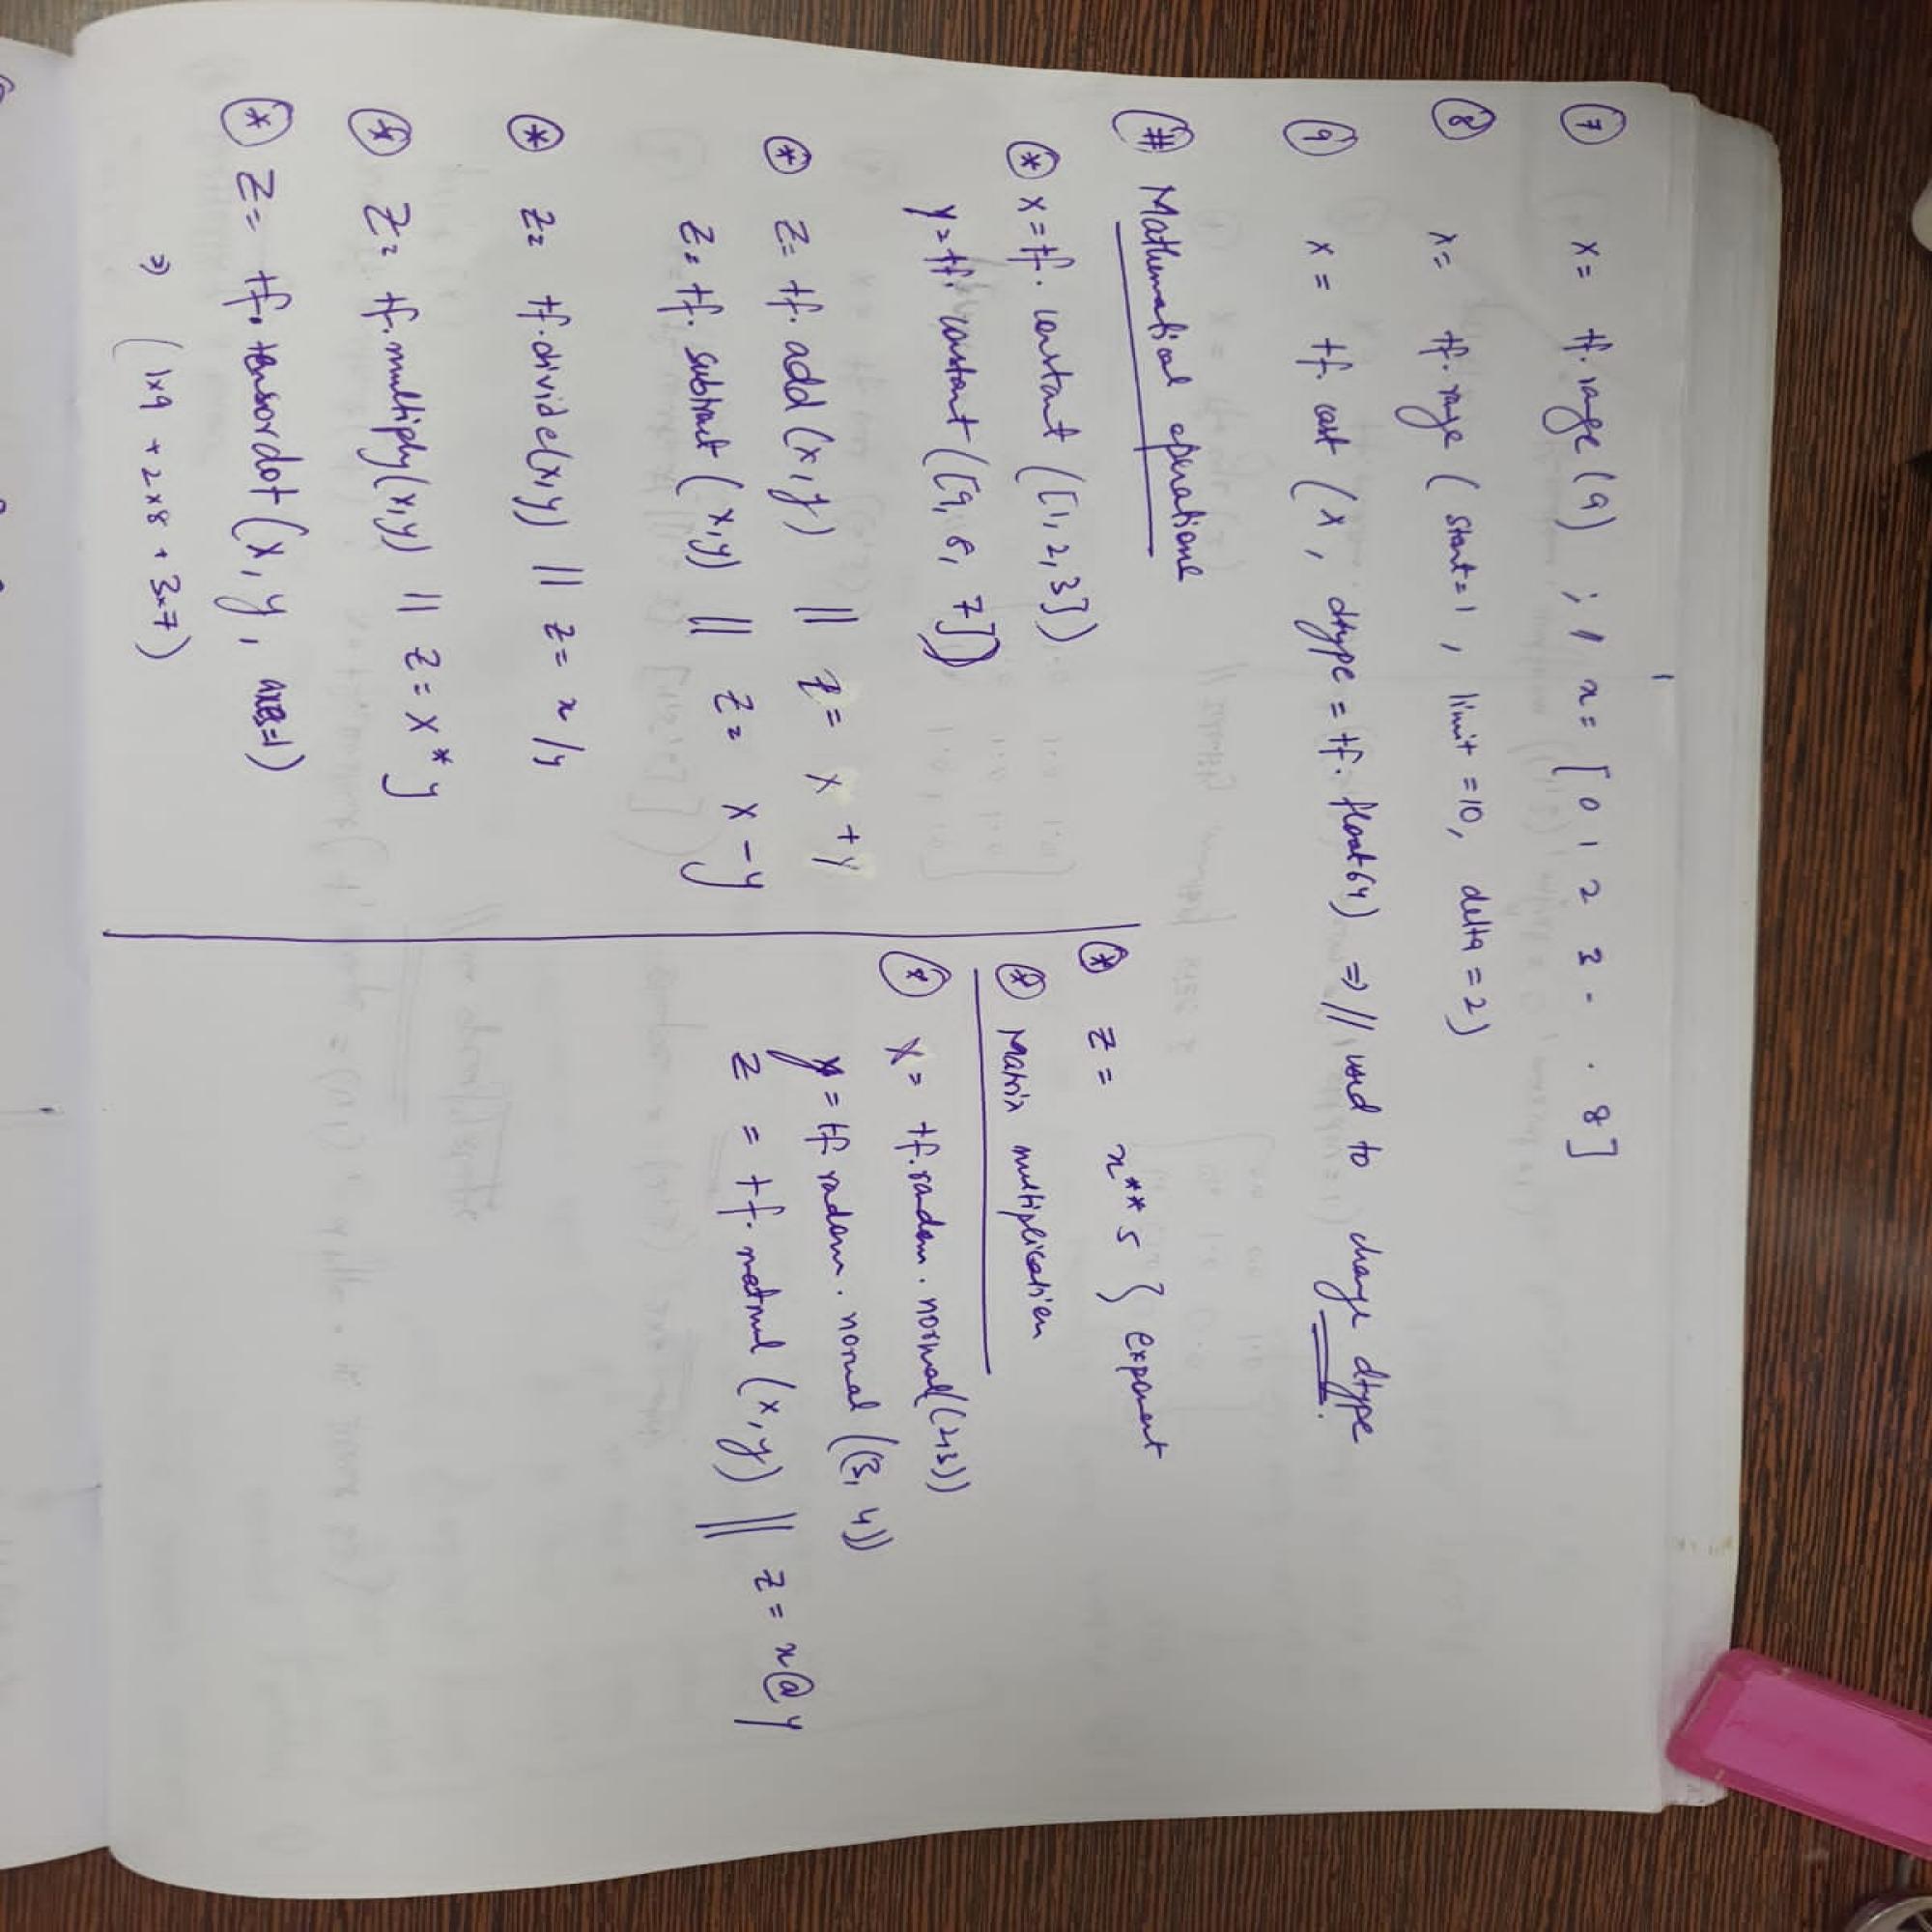 ⑦ x = tf.range(9) ; // x = [0 1 2 3 - . . 8]
⑧ x = tf.range(start=1, limit=10, delta=2)
⑨ x = tf.cast(x, dtype = tf.float64) ⇒ // used to change dtype.
(#) Mathematical operations
⊛ x = tf.constant([1,2,3])
y = tf.constant([9, 8, 7])
⊛ z = tf.add(x,y) || z = x + y
z = tf.subtract(x,y) || z = x - y
⊛ z = tf.divide(x,y) || z = x/y
⊛ z = tf.multiply(x,y) || z = x * y
⊛ z = tf.tensordot(x, y, axes=1)
⇒ (1x9 + 2x8 + 3x7)
⊛ z = x ** 5 } exponent
⊛ Matrix multiplication
⊛ x = tf.random.normal((2,3))
y = tf.random.normal((3, 4))
z = tf.matmul(x,y) || z = x@y